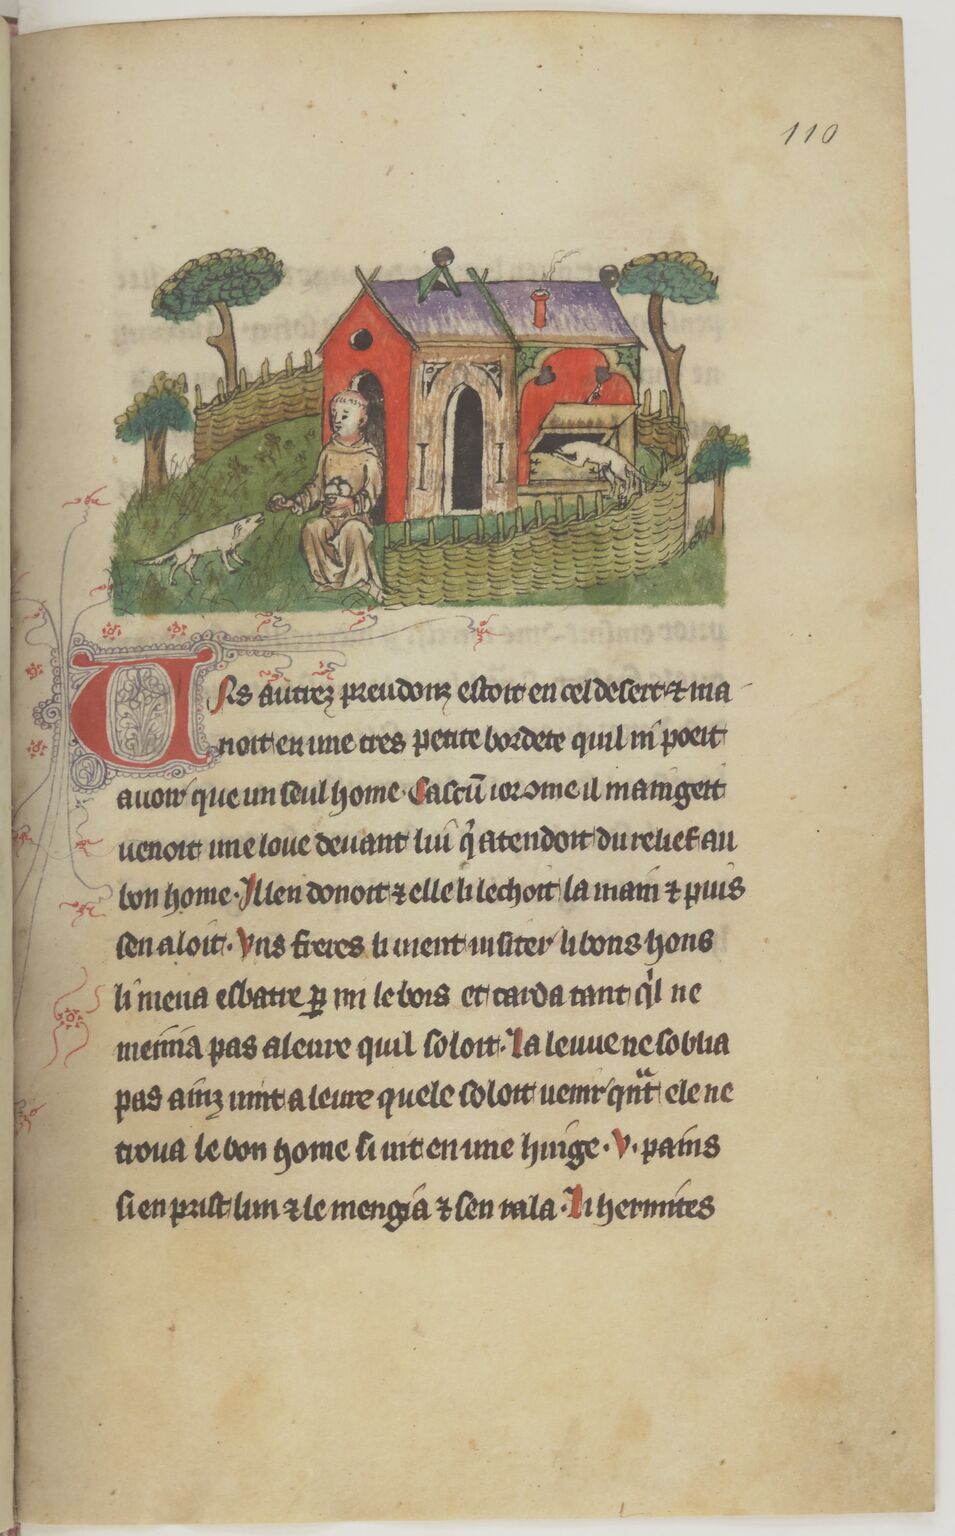 110
Uns autrez preudonz estoit en cel desert ⁊ ma
noit en une tres petite bordete quil ni poeit
avoir que un seul home. Cascū ior ome il mangeit
venoit une love devant lui q̓ atendoit du relief au
bon home. Il len donoit ⁊ elle li lechoit la main ⁊ puis
sen aloit. Uns freres li vient visiter li bons hons
li mena esbatre ꝑ mi le bois et tarda tant q̓l ne
menia pas a leure quil soloit. La leuve ne soblia
pas ainz vint a leure quele soloit venir qn̄t ele ne
trova le bon home si vit en une huige .v. pains
si en prist lun ⁊ le mengia ⁊ sen rala. Li hermites